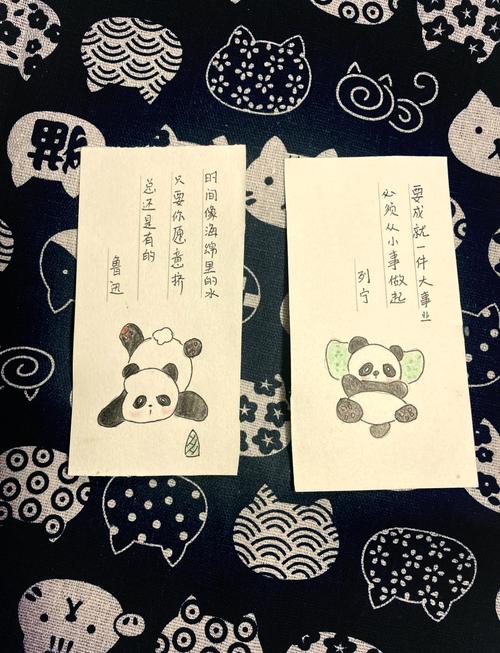 时间像海绵里的水
只要你愿意挤
总还是有的
鲁迅
要成就一件大事业
必须从小事做起
列宁